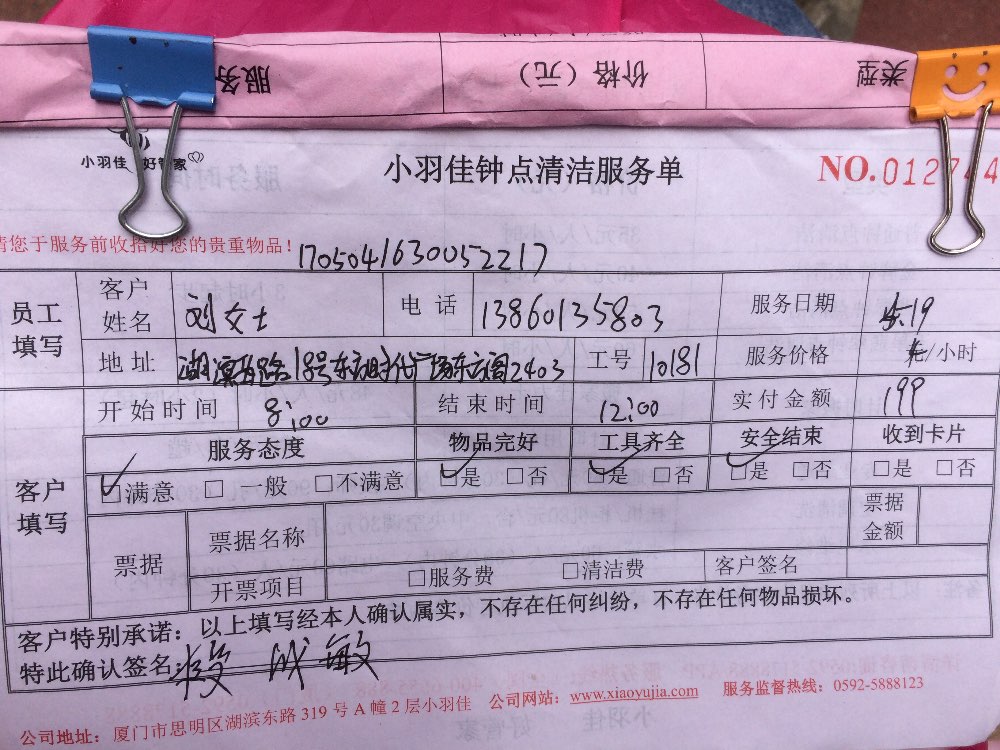 服务 价格（元） 类型
小羽佳 好管家
小羽佳钟点清洁服务单
NO.012744
请您于服务前收拾好您的贵重物品！
1705041630052217
员工填写
客户姓名 刘女士 电话 13860135803 服务日期
地址 工号 10181 服务价格 /小时
开始时间 8:00 结束时间 12:00 实付金额 199
客户填写
服务态度 物品完好 工具齐全 安全结束 收到卡片
☑满意 □一般 □不满意 ☑是 □否 ☑是 □否 ☑是 □否 □是 □否
票据 票据名称 票据金额
开票项目 □服务费 □清洁费 客户签名
客户特别承诺：以上填写经本人确认属实，不存在任何纠纷，不存在任何物品损坏。
特此确认签名：
公司地址：厦门市思明区湖滨东路 319 号 A 幢 2 层小羽佳 公司网站：www.xiaoyujia.com 服务监督热线：0592-5888123